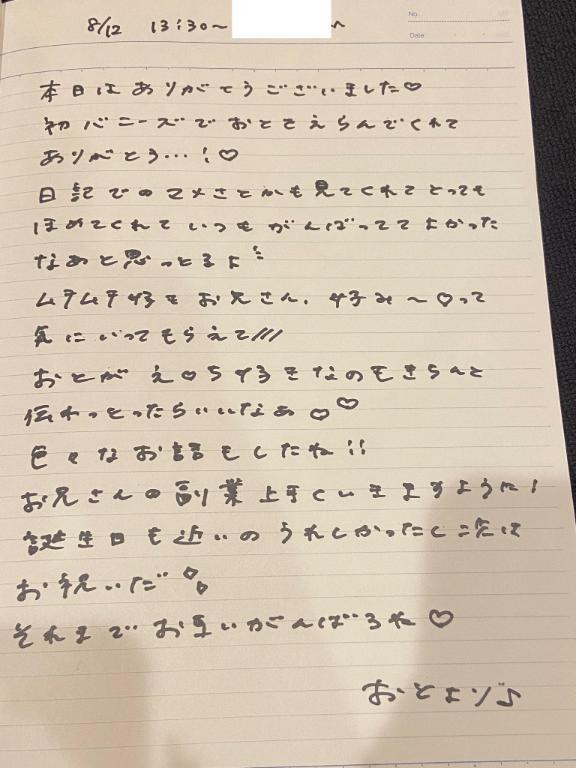 8/12 13:30〜 へ
No.
Date
本日はありがとうございました♡
初バニーズでおとをえらんでくれて
ありがとう…!♡
日記でのマメさとかも見てくれてとっても
ほめてくれていつもがんばっててよかった
なぁと思っとるよ
ムチムチ好きお兄さん、好み〜♡って
気にいってもらえて///
おとがえ♡ち好きなのもきちんと
伝わっとったらいいなぁ♡♡
色々なお話もしたね!!
お兄さんの副業上手くいきますように!
誕生日も近いのうれしかったし二人で
お祝いだ
それまでお互いがんばろね♡
おとより♪